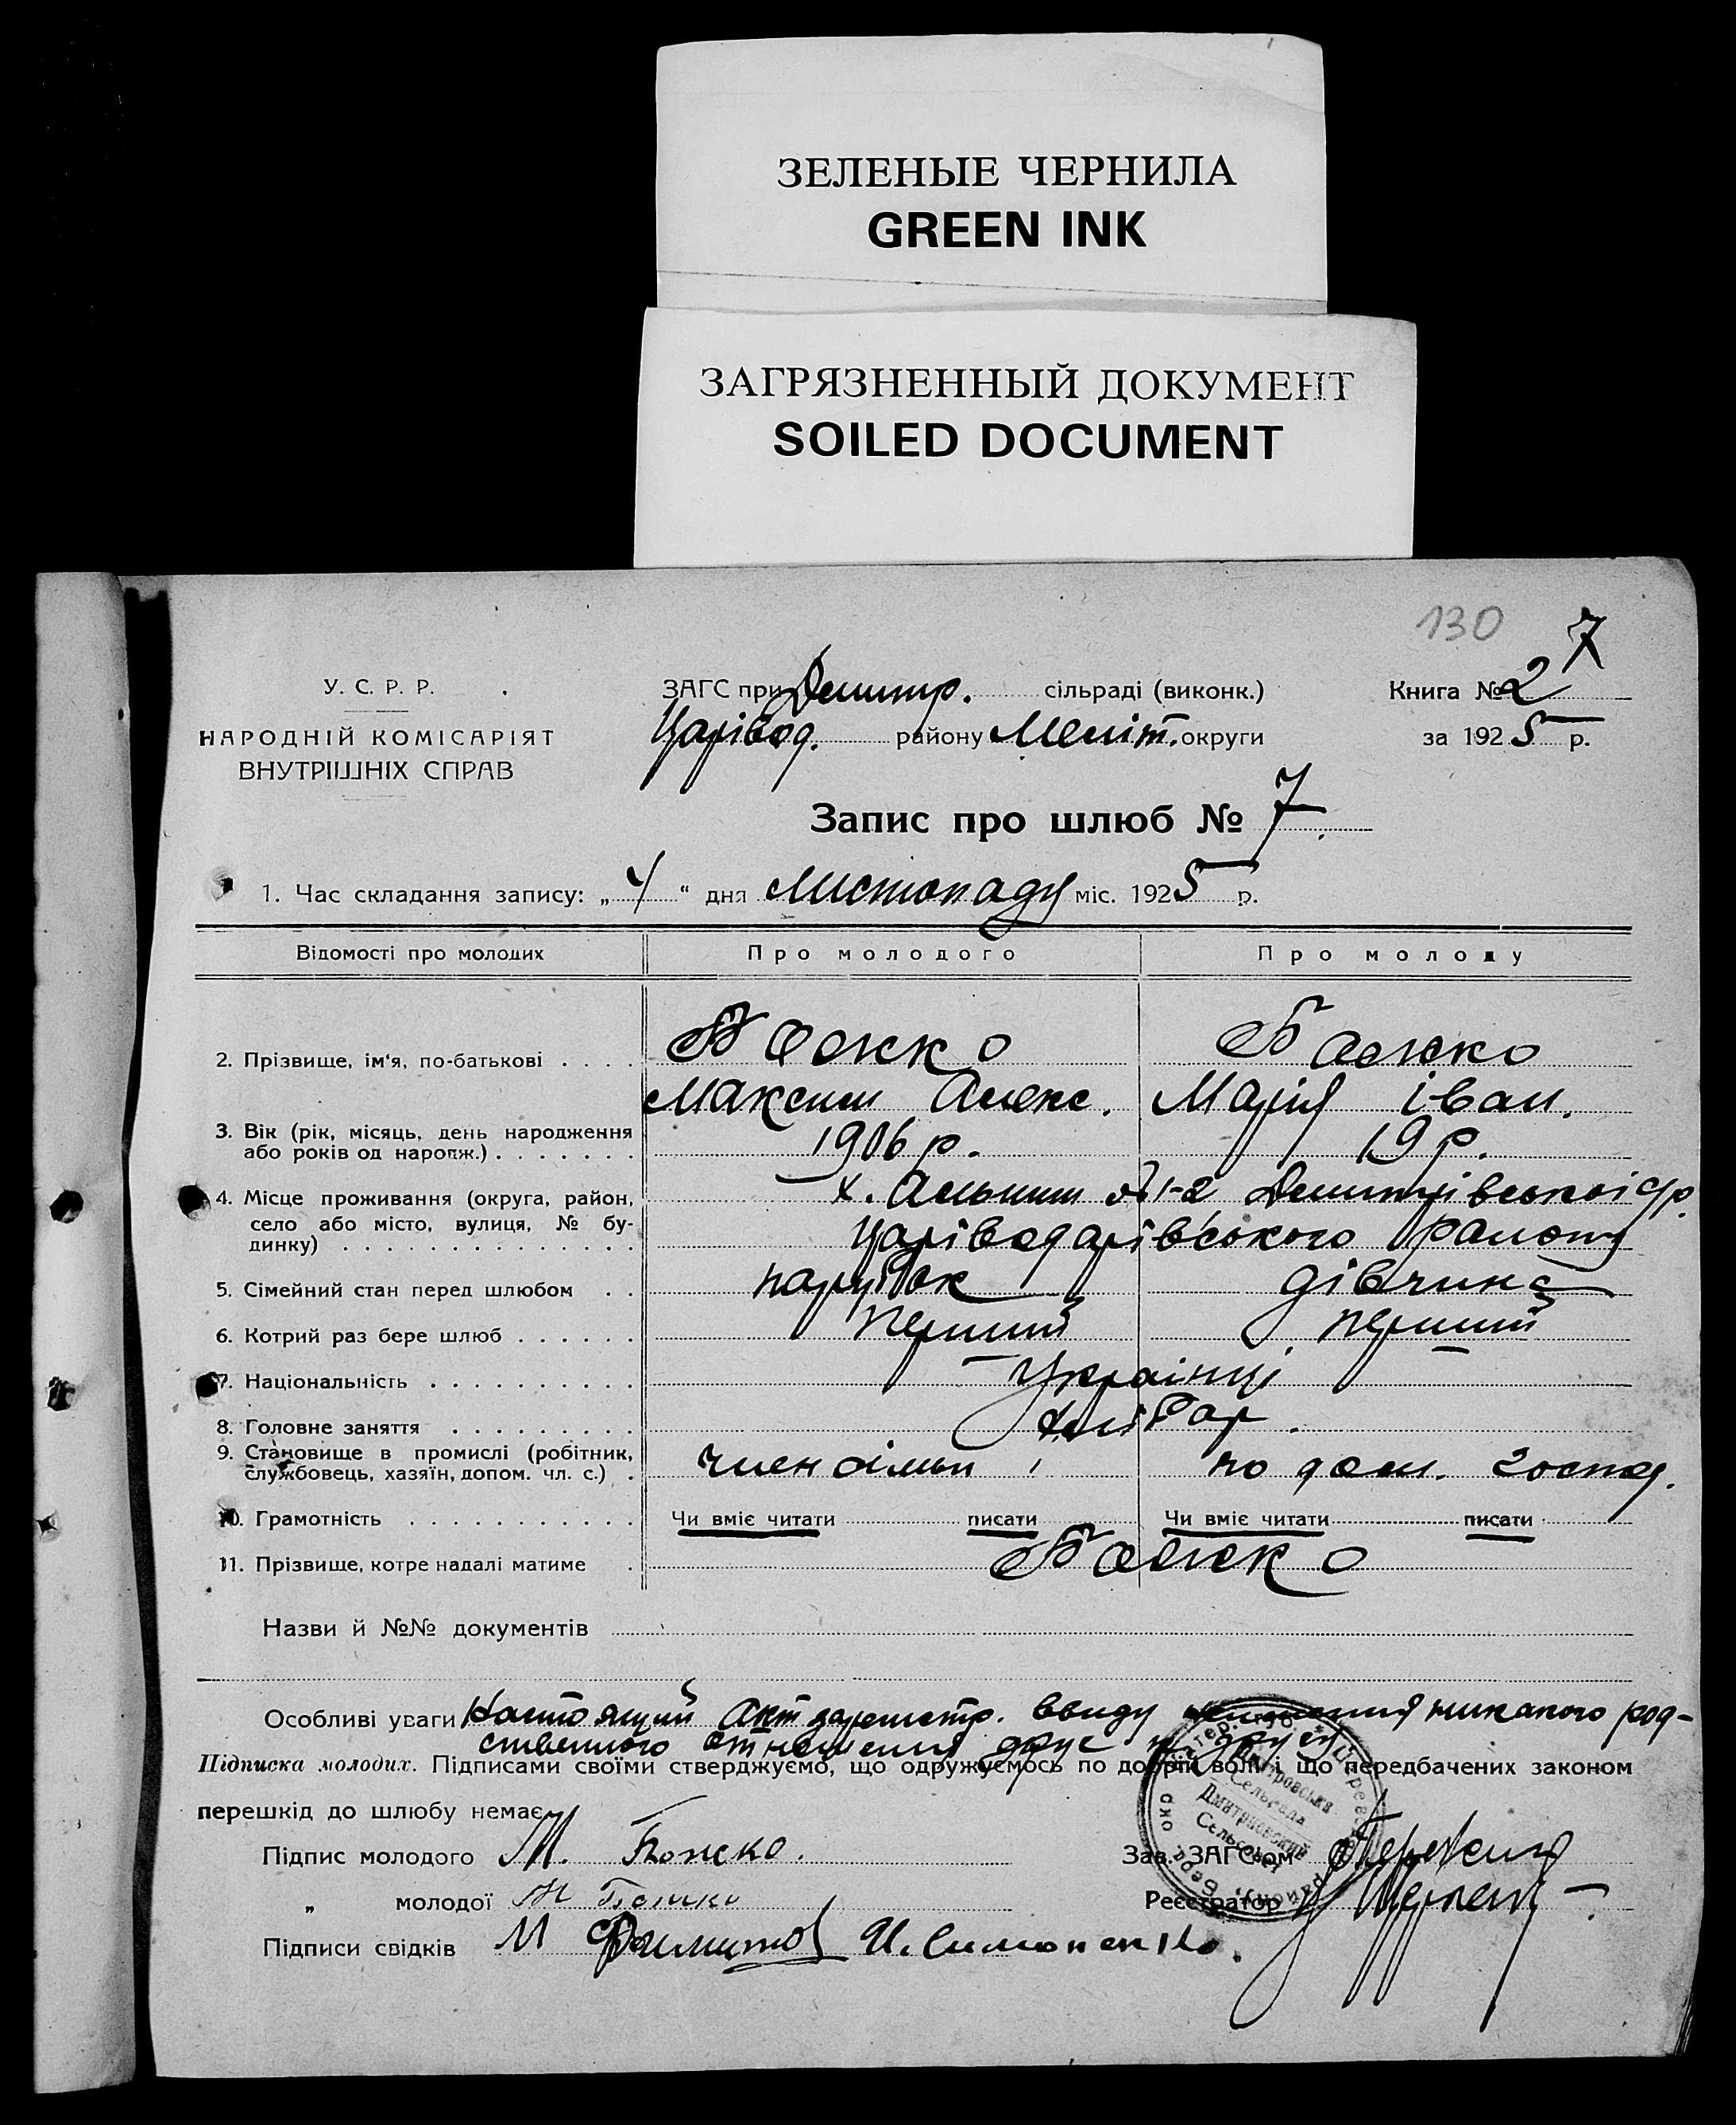 ЗЕЛЕНЫЕ ЧЕРНИЛА
GREEN INK
ЗАГРЯЗНЕННЫЙ ДОКУМЕНТ
SOILED DOCUMENT
130 7
У. С. Р. Р. ЗАГС при Демитр. сільраді (виконк.) Книга № 2
НАРОДНІЙ КОМІСАРІЯТ Царівод. району Меліт. округи за 1925 р.
ВНУТРІШНІХ СПРАВ
Запис про шлюб № 7.
1. Час складання запису: „4“ дня Листопаду міс. 1925 р.
Відомості про молодих Про молодого Про молоду
2. Прізвище, ім'я, по-батькові Божко Божко
Максим Алекс. Марія Іван.
3. Вік (рік, місяць, день народження
або років од нарожж.) 1906 р. 19 р.
4. Місце проживання (округа, район, х. №1-2 Демитрівської с/р.
село або місто, вулиця, № бу-
динку) Царіводарівського району
5. Сімейний стан перед шлюбом парубок дівчина
6. Котрий раз бере шлюб перший перший
7. Національність Українці
8. Головне заняття хлібар.
9. Становище в промислі (робітник,
службовець, хазяїн, допом. чл. с.) член сімьи по дом. господ.
10. Грамотність Чи вміє читати писати Чи вміє читати писати
11. Прізвище, котре надалі матиме Божко
Назви й №№ документів
Особливі уваги Настоящий акт зарегистр. ввиду никакого род-
ственного отношения друг к другу
Підписка молодих. Підписами своїми стверджуємо, що одружуємось по добрій волі і що передбачених законом
перешкід до шлюбу немає
Підпис молодого М. Божко. Зав. ЗАГС'ом
„ молодої М Божко Реєстратор
Підписи свідків М И. Симоненко.
Дмитровська
Сельрада
Дмитровский
Сельсовет